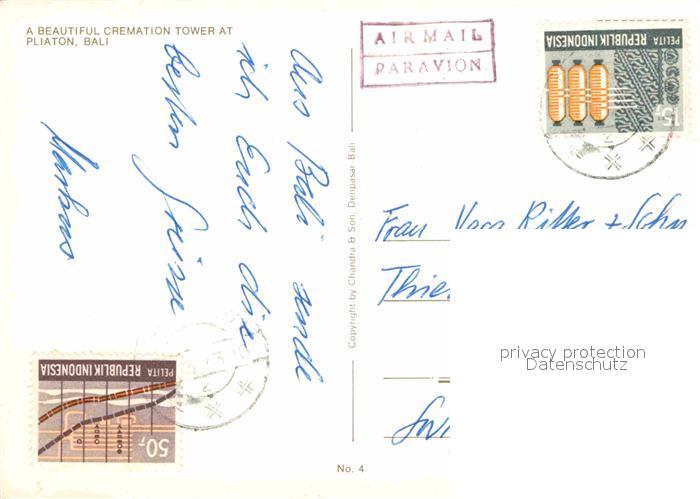 A BEAUTIFUL CREMATION TOWER AT
PLIATON, BALI
Aus Bali sende
ich Euch die
besten Grüsse
Markus
AIR MAIL
PAR AVION
PELITA
REPUBLIK INDONESIA
15,-
Frau Vera Ritter + Sohn
privacy protection
Datenschutz
Copyright by Chandra & Son, Denpasar-Bali
PELITA
REPUBLIK INDONESIA
50,-
No. 4